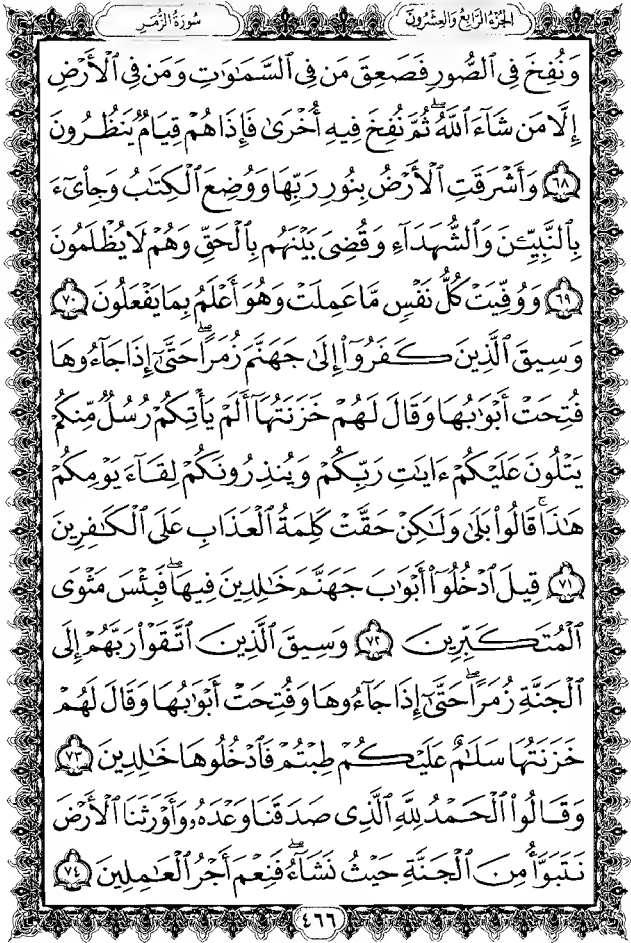 الجزء الرابع والعشرون
سورة الزمر
وَنُفِخَ فِي ٱلصُّورِ فَصَعِقَ مَن فِي ٱلسَّمَٰوَٰتِ وَمَن فِي ٱلْأَرْضِ
إِلَّا مَن شَآءَ ٱللَّهُۖ ثُمَّ نُفِخَ فِيهِ أُخْرَىٰ فَإِذَا هُمْ قِيَامٌ يَنظُرُونَ
٦٨ وَأَشْرَقَتِ ٱلْأَرْضُ بِنُورِ رَبِّهَا وَوُضِعَ ٱلْكِتَٰبُ وَجِا۟ىٓءَ
بِٱلنَّبِيِّـۧنَ وَٱلشُّهَدَآءِ وَقُضِىَ بَيْنَهُم بِٱلْحَقِّ وَهُمْ لَا يُظْلَمُونَ
٦٩ وَوُفِّيَتْ كُلُّ نَفْسٍ مَّا عَمِلَتْ وَهُوَ أَعْلَمُ بِمَا يَفْعَلُونَ ٧٠
وَسِيقَ ٱلَّذِينَ كَفَرُوٓا۟ إِلَىٰ جَهَنَّمَ زُمَرًاۖ حَتَّىٰٓ إِذَا جَآءُوهَا
فُتِحَتْ أَبْوَٰبُهَا وَقَالَ لَهُمْ خَزَنَتُهَآ أَلَمْ يَأْتِكُمْ رُسُلٌ مِّنكُمْ
يَتْلُونَ عَلَيْكُمْ ءَايَٰتِ رَبِّكُمْ وَيُنذِرُونَكُمْ لِقَآءَ يَوْمِكُمْ
هَٰذَاۚ قَالُوا۟ بَلَىٰ وَلَٰكِنْ حَقَّتْ كَلِمَةُ ٱلْعَذَابِ عَلَى ٱلْكَٰفِرِينَ
٧١ قِيلَ ٱدْخُلُوٓا۟ أَبْوَٰبَ جَهَنَّمَ خَٰلِدِينَ فِيهَاۖ فَبِئْسَ مَثْوَى
ٱلْمُتَكَبِّرِينَ ٧٢ وَسِيقَ ٱلَّذِينَ ٱتَّقَوْا۟ رَبَّهُمْ إِلَى
ٱلْجَنَّةِ زُمَرًاۖ حَتَّىٰٓ إِذَا جَآءُوهَا وَفُتِحَتْ أَبْوَٰبُهَا وَقَالَ لَهُمْ
خَزَنَتُهَا سَلَٰمٌ عَلَيْكُمْ طِبْتُمْ فَٱدْخُلُوهَا خَٰلِدِينَ ٧٣
وَقَالُوا۟ ٱلْحَمْدُ لِلَّهِ ٱلَّذِى صَدَقَنَا وَعْدَهُۥ وَأَوْرَثَنَا ٱلْأَرْضَ
نَتَبَوَّأُ مِنَ ٱلْجَنَّةِ حَيْثُ نَشَآءُۖ فَنِعْمَ أَجْرُ ٱلْعَٰمِلِينَ ٧٤
٤٦٦